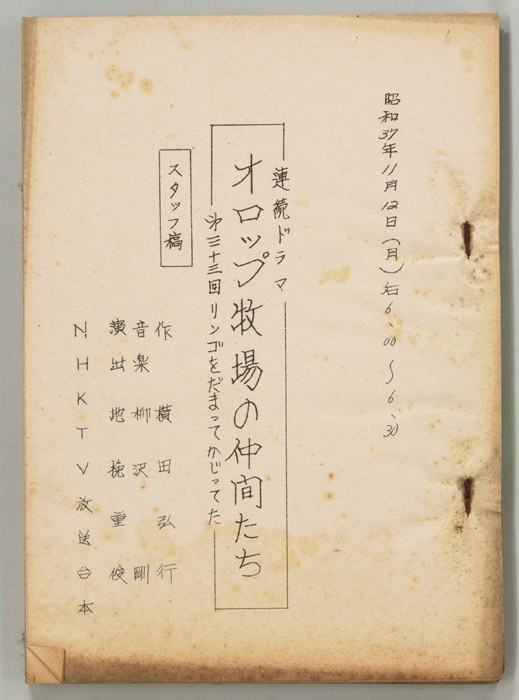 昭和37年11月12日(月)后6、00〜6、30
連続ドラマ
オロップ牧場の仲間たち
第三十三回 リンゴをだまってかじってた
スタッフ稿
作 横田弘行
音楽 柳沢剛
演出 地挽重俊
NHKTV放送台本